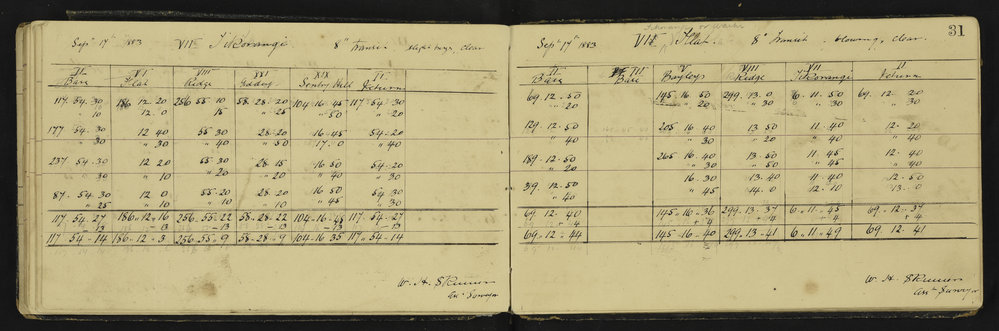 31
Sept 17th 1883 VII Tikorangi 8" Transit clear
II VI VIII XXI XIX II
Base Flat Ridge Return
117 . 54 . 30 186 12 . 20 256 55 . 10 58 . 28 . 20 104 . 16 . 45 117 . 54 . 30
" 10 12 . 0 15 " 25 " 50 " 20
177 54 . 30 12 40 55 30 28 . 20 16 . 45 54 . 20
" 30 " 30 " 40 " 50 17 . 0 " 40
237 54 . 30 12 20 55 . 30 28 . 15 16 50 54 . 20
" 30 " 10 " 20 " 20 " 40 " 30
87 . 54 . 30 12 0 55 . 20 28 . 20 16 50 54 . 30
" 25 " 10 " 10 " 10 " 45 " 30
117 54 . 27 186 . 12 . 16 256 . 55 . 22 58 . 28 . 22 104 . 16 . 48 117 . 54 . 27
- 13 - 13 - 13 - 13 - 13 - 13
117 . 54 . 14 186 . 12 . 3 256 . 55 . 9 58 . 28 . 9 104 . 16 . 35 117 . 54 . 14
W. H. Skinner
Asst Surveyor
Sept 17th 1883 VII Flat 8" Transit blowing, clear.
II III V VIII VII II
Base Base Bayleys Ridge Tikorangi Return
69 . 12 . 50 145 . 16 . 50 299 . 13 . 0 6 . 11 . 50 69 . 12 . 20
" 20 " 20 " 30 " 30 " 30
129 . 12 . 50 205 . 16 . 40 13 . 50 11 . 40 12 . 20
" 30 " 20 " 40 " 40
189 . 12 . 50 265 . 16 . 40 13 . 50 11 . 45 12 . 40
" 40 " 30 " 50 " 45 " 40
39 . 12 . 50 16 . 30 13 . 40 11 . 40 12 . 50
" 40 " 45 14 . 0 12 . 10 13 . 0
69 . 12 . 40 145 . 16 . 36 299 . 13 . 37 6 . 11 . 45 69 . 12 . 37
4 + 4 4 4 + 4
69 . 12 . 44 145 . 16 . 40 299 . 13 . 41 6 . 11 . 49 69 . 12 . 41
W. H. Skinner
Asst Surveyor